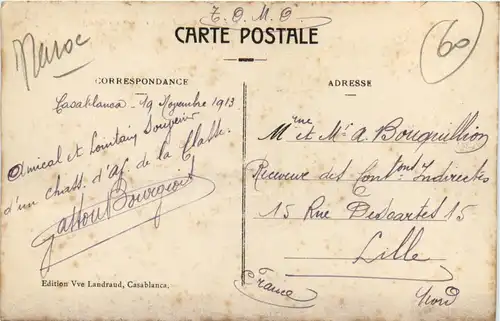 T.O.M.O.
Maroc
60
CARTE POSTALE
CORRESPONDANCE
ADRESSE
Casablanca - 19 Novembre 1913
Amical et Lointain Souvenir
d'un chass. d'Af. de la Classe.
Gaston Bourgeois
Mme et Mr A. Bouquillion
Receveur des Contons Indirectes
15 Rue Descartes 15
Lille
France
Nord
Edition Vve Landraud, Casablanca.